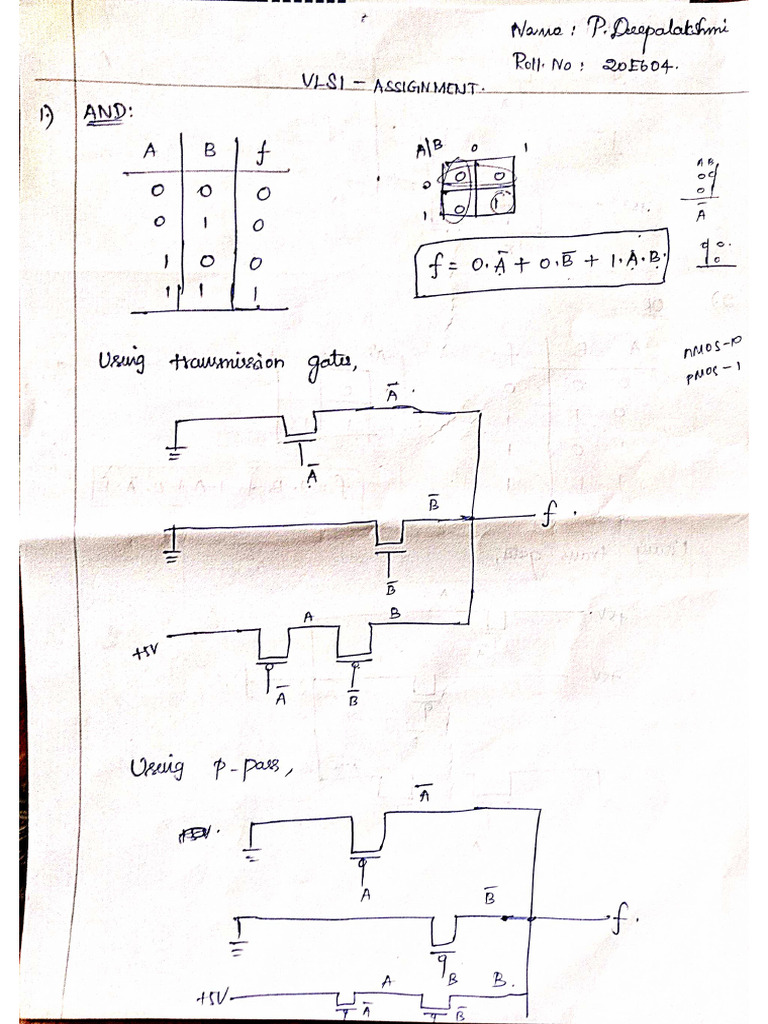 Name : P. Deepalakshmi
Roll. No : 20E604.
VLSI - ASSIGNMENT.
1.) AND:
A B f
0 0 0
0 1 0
1 0 0
1 1 1
A|B 0 1
0 0 0
1 0 1
A B
0 0
0
Ā
f = 0.Ā + 0.B̄ + 1.A.B.
nMOS-0
pMOS-1
Using transmission gates,
Ā
Ā
B̄
f.
B̄
A B
+5V
Ā B̄
Using P-pass,
Ā
A
B̄
f.
B
+5V A B.
Ā B̄